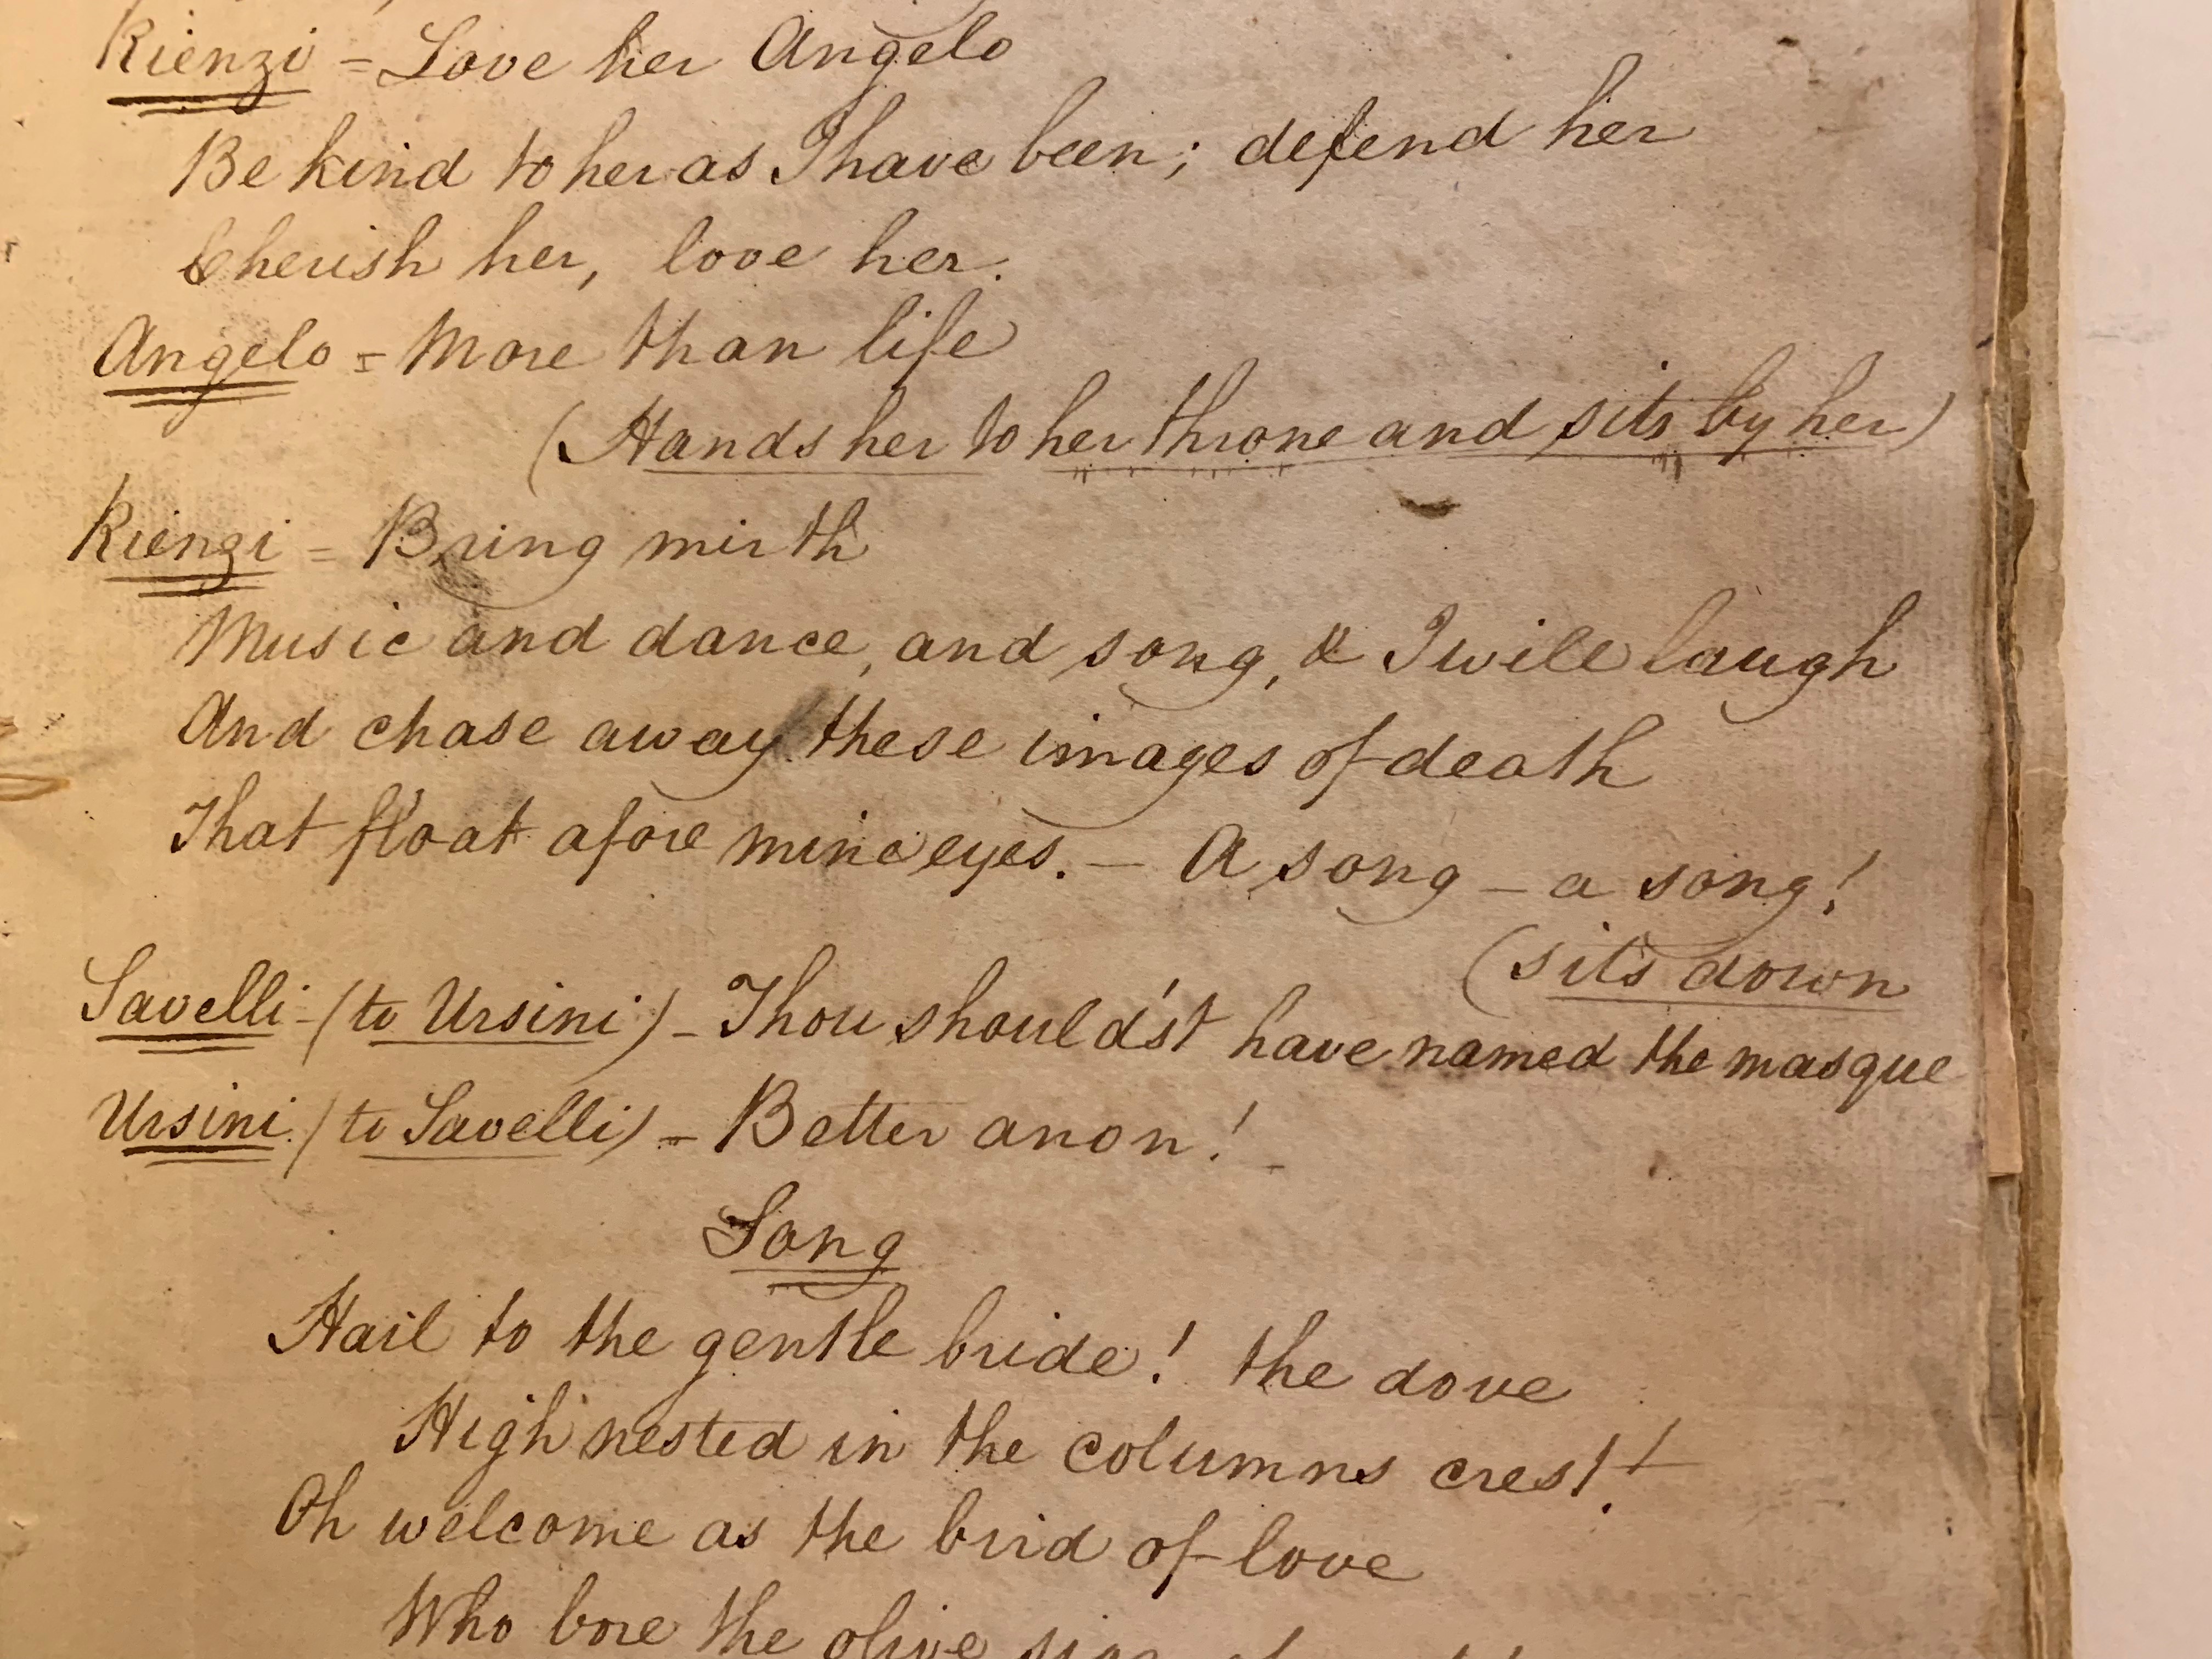 Rienzi = Love her Angelo
Be kind to her as I have been; defend her
Cherish her, love her.
Angelo = More than life
(Hands her to her throne and sits by her)
Rienzi = Bring mirth
Music and dance, and song, & I will laugh
And chase away these images of death
That float afore mine eyes. — A song — a song!
(sits down
Savelli - (to Ursini) - Thou should'st have named the masque
Ursini (to Savelli) = Better anon! -
Song
Hail to the gentle bride! the dove
High nested in the columns crest!
Oh welcome as the bird of love
Who bore the olive sign